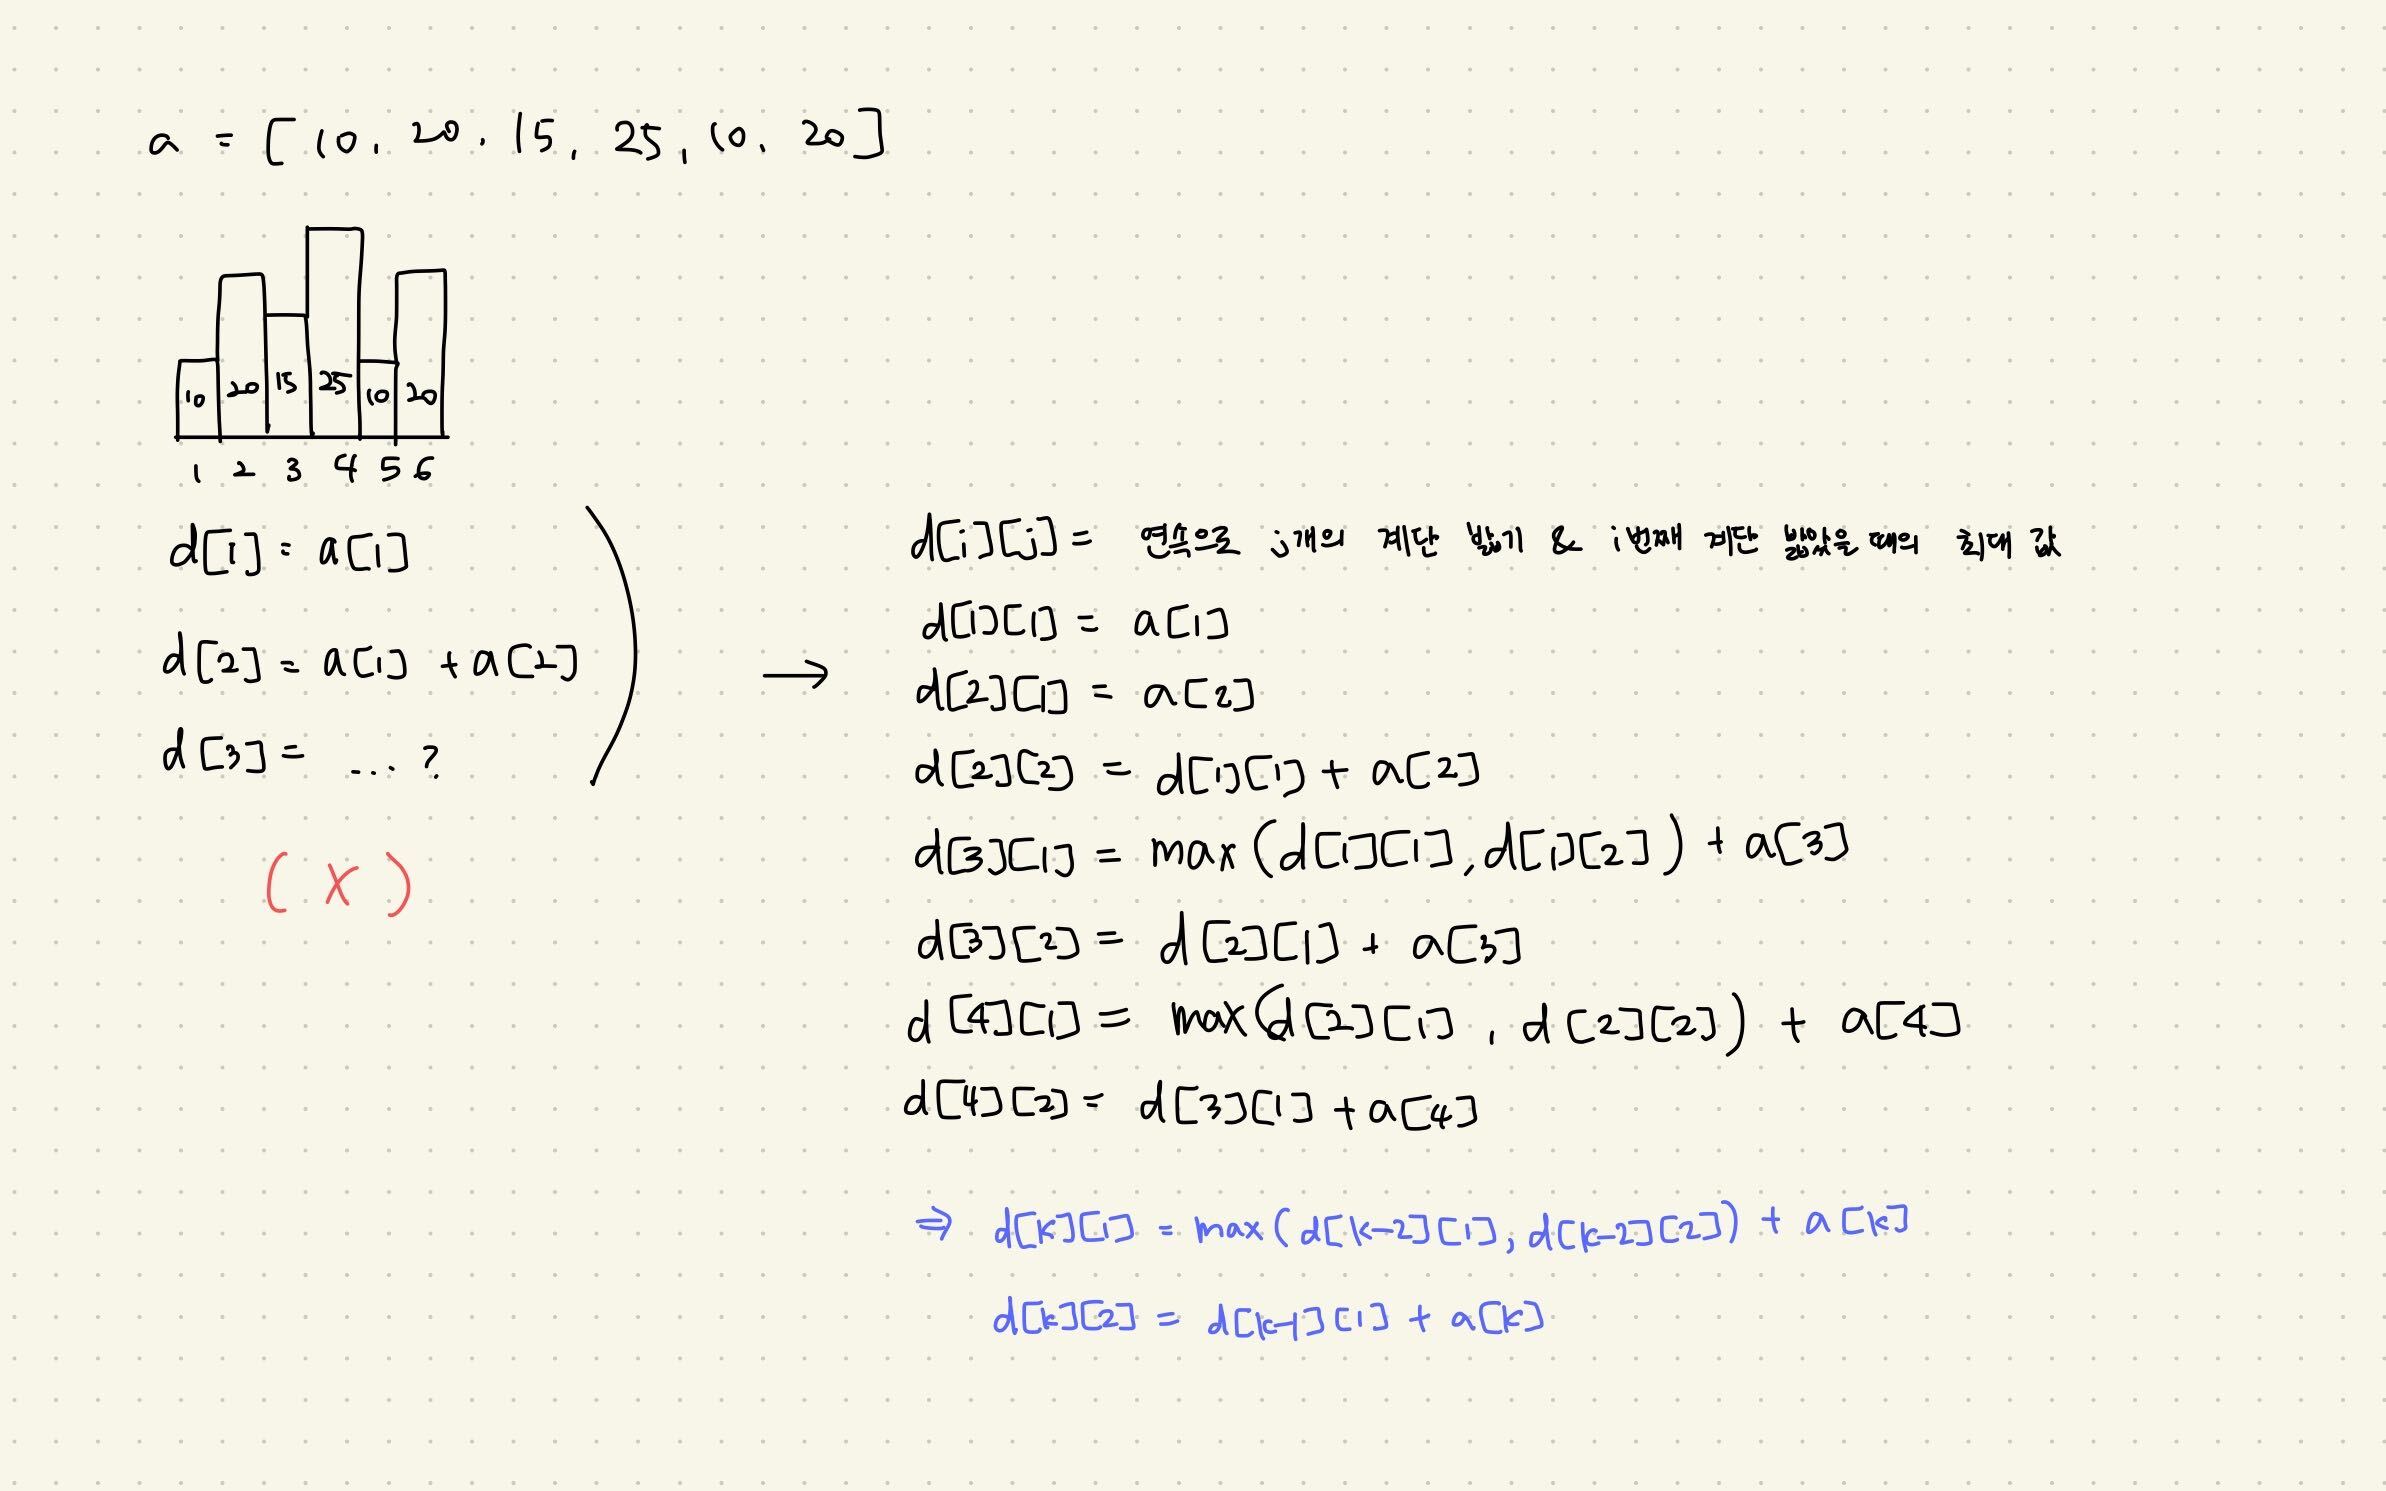 a = [10, 20, 15, 25, 10, 20]
10 20 15 25 10 20
1 2 3 4 5 6
d[1] = a[1]
d[2] = a[1] + a[2]
d[3] = ... ?
(X)
→
d[i][j] = 연속으로 j개의 계단 밟기 & i번째 계단 밟았을 때의 최대 값
d[1][1] = a[1]
d[2][1] = a[2]
d[2][2] = d[1][1] + a[2]
d[3][1] = max(d[1][1], d[1][2]) + a[3]
d[3][2] = d[2][1] + a[3]
d[4][1] = max(d[2][1], d[2][2]) + a[4]
d[4][2] = d[3][1] + a[4]
⇒ d[k][1] = max(d[k-2][1], d[k-2][2]) + a[k]
d[k][2] = d[k-1][1] + a[k]